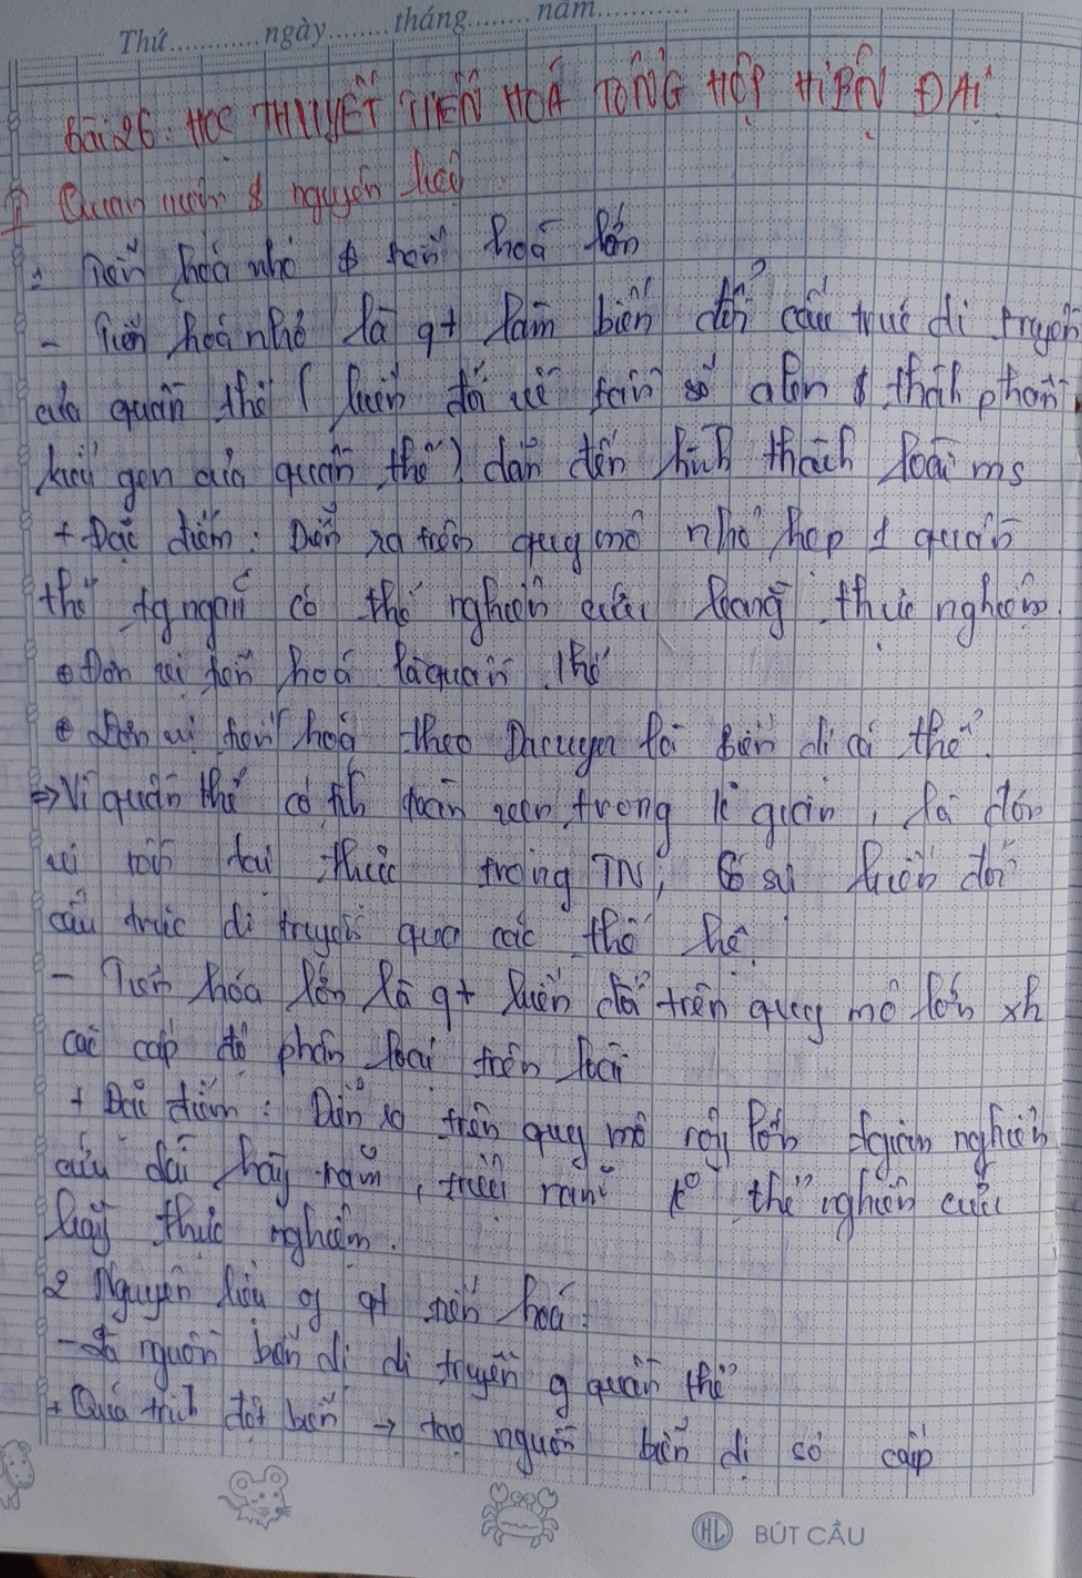 Thứ............ngày........tháng........năm............
Bài 26: HỌC THUYẾT TIẾN HOÁ TỔNG HỢP HIỆN ĐẠI
I Quan niệm & nguyên liệu
1. Tiến hoá nhỏ & tiến hoá lớn
- Tiến hoá nhỏ là qt làm biến đổi cấu trúc di truyền
của quần thể ( biến đổi về tần số alen & thành phần
kiểu gen của quần thể ) dẫn đến hình thành loài ms
+ Đặc điểm: Diễn ra trên quy mô nhỏ hẹp 1 quần
thể tg ngắn có thể nghiên cứu bằng thực nghiệm.
Đơn vị tiến hoá là quần thể
Đơn vị tiến hoá theo Đacuyn là biến dị cá thể.
=> Vì quần thể có toàn vẹn trong k gian, là đơn
vị tồn tại thực trong TN, có sự biến đổi
cấu trúc di truyền qua các thế hệ.
- Tiến hóa lớn là qt biến đổi trên quy mô lớn xh
các cấp độ phân loại trên loài
+ Đặc điểm: Diễn ra trên quy mô rộng lớn nghiên
cứu dài hàng năm, triệu năm ko thể nghiên cứu
bằng thực nghiệm.
2 Nguyên liệu of qt tiến hoá:
- Là nguồn biến dị di truyền of quần thể
+ Quá trình đột biến → tạo nguồn biến dị sơ cấp
HL BÚT CÂU